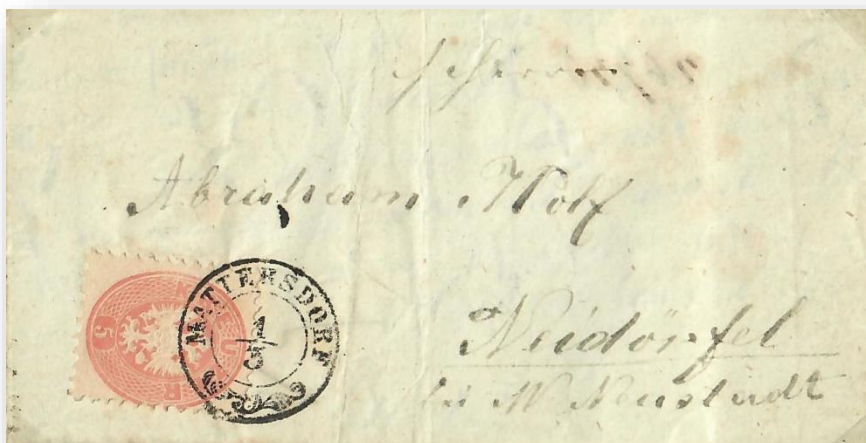 Abraham Wolf
MATTERSDORF
1
3
5
Neidörfel
bei W Neustadt